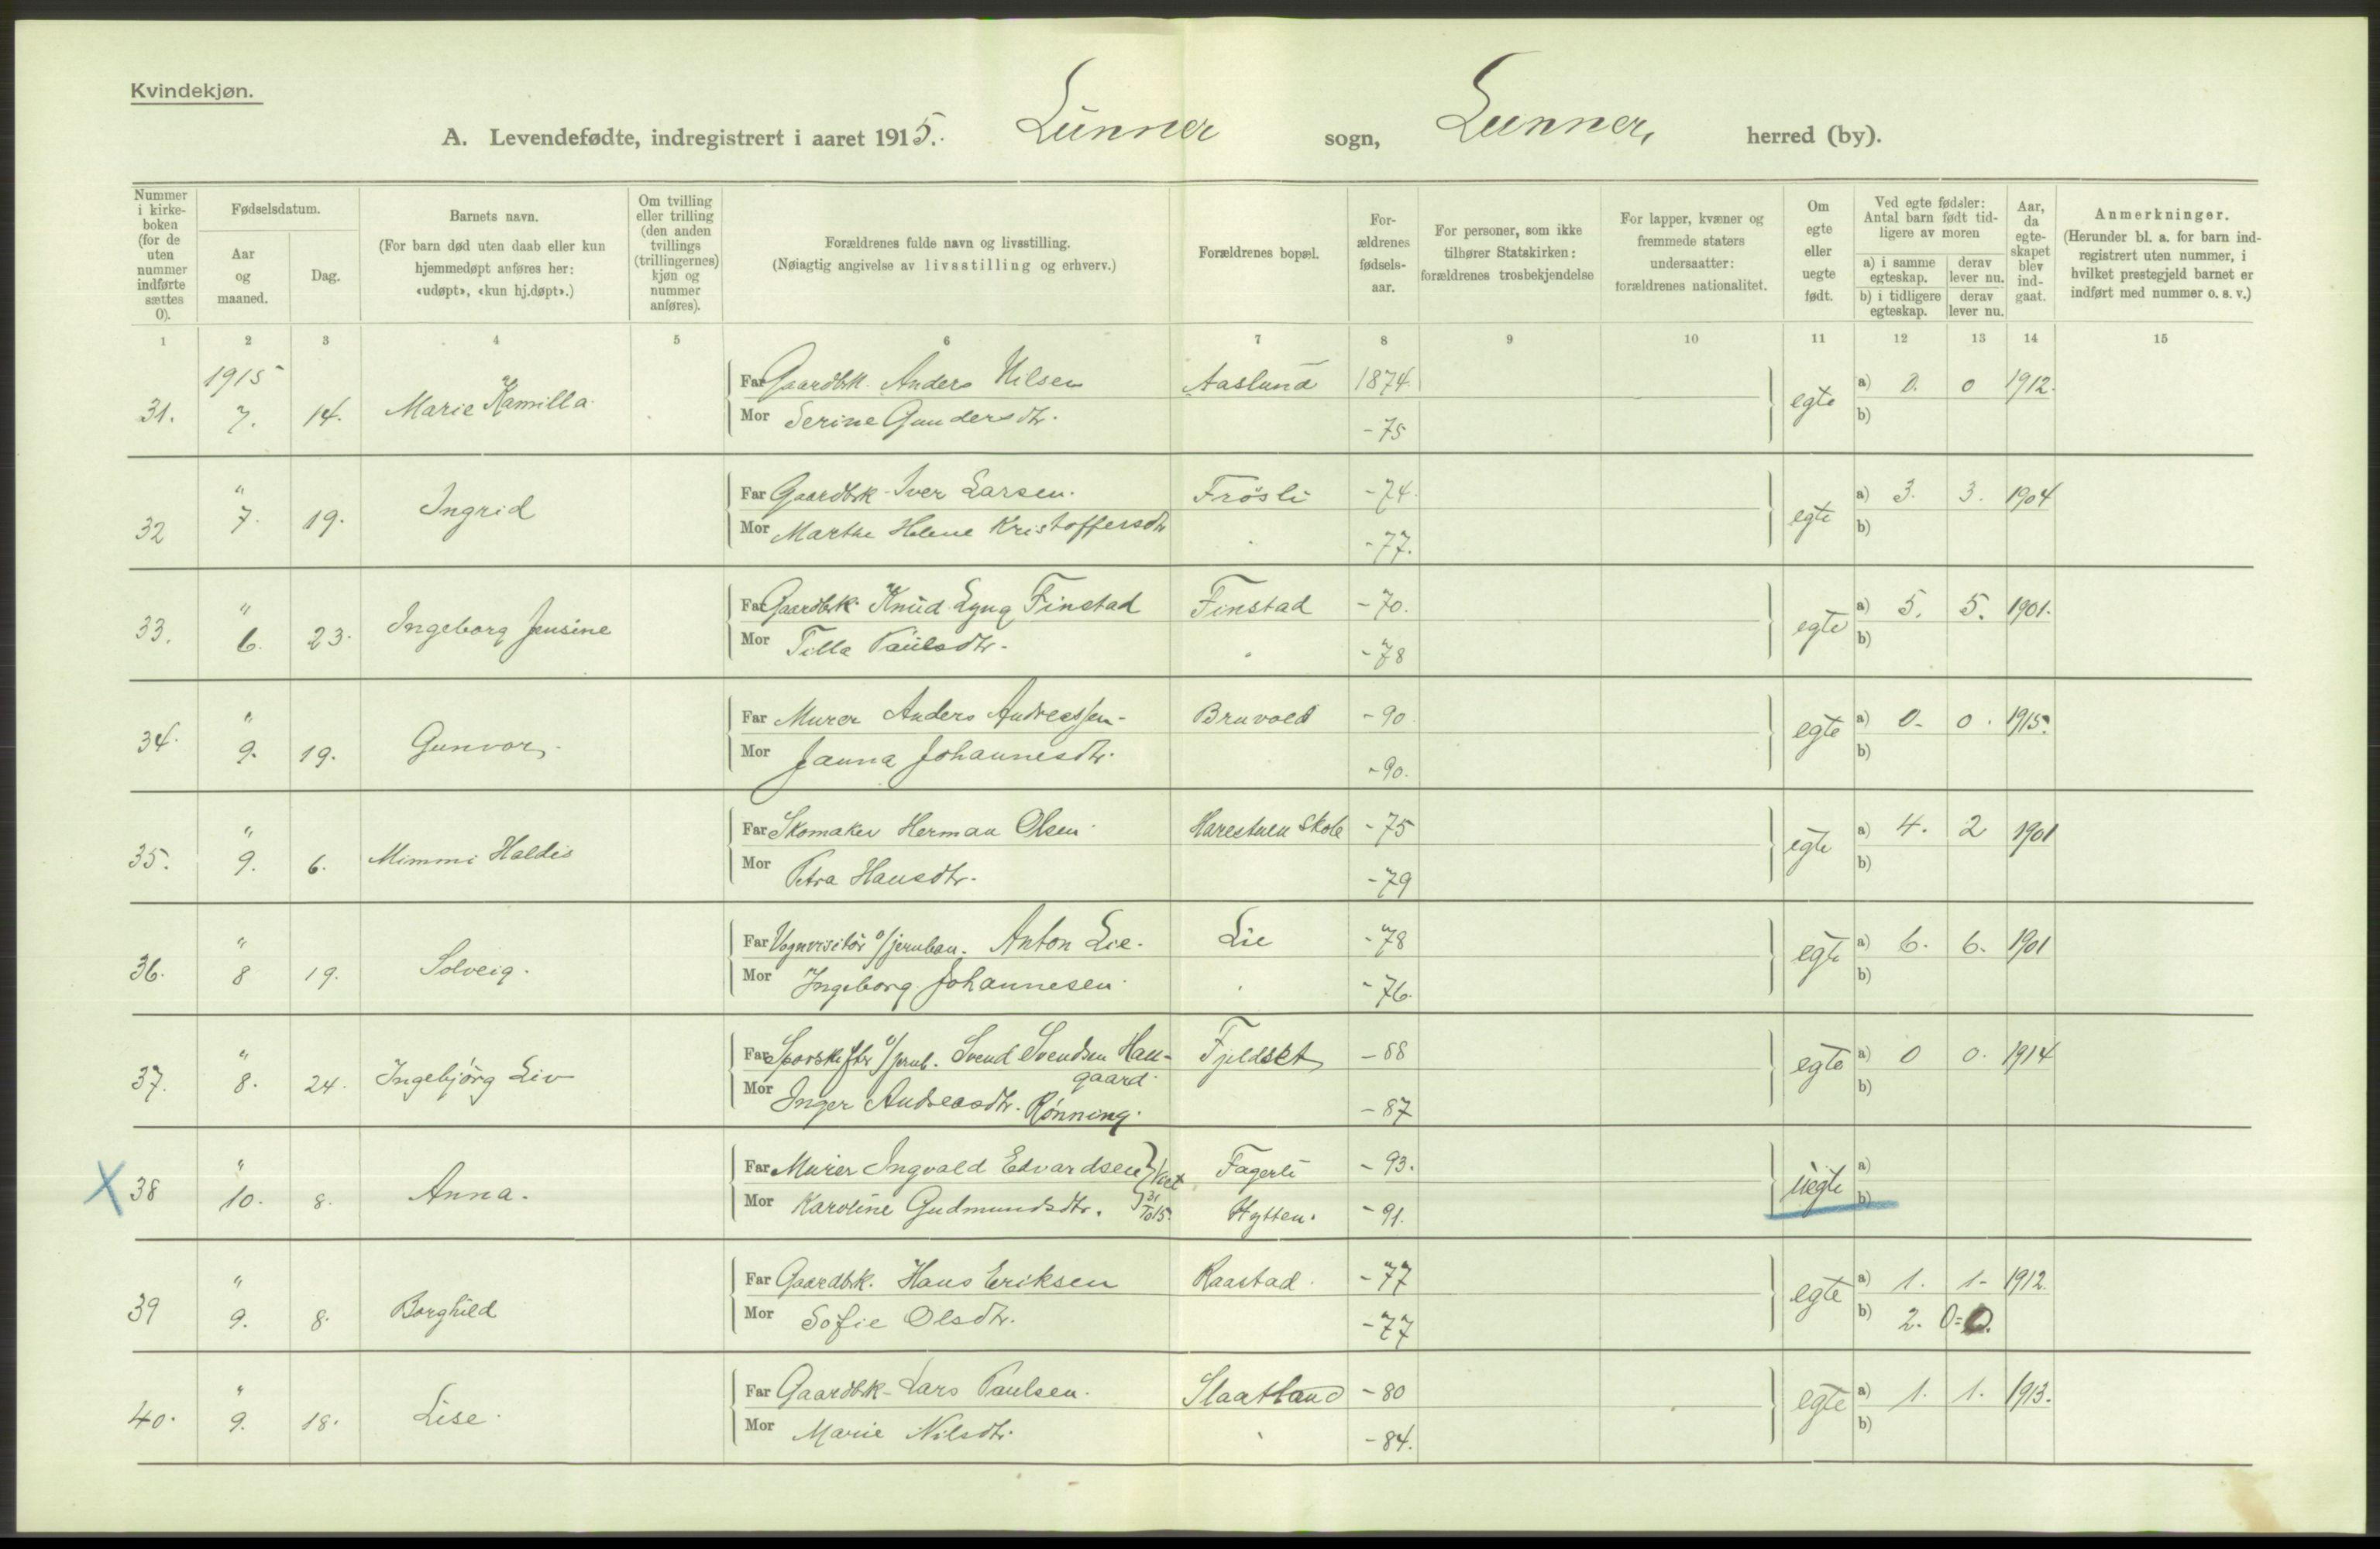 Kvindekjøn.
A. Levendefødte, indregistrert i aaret 1915. Lunner sogn, Lunner, herred (by).
Nummer i kirkeboken (for de uten nummer indførte sættes 0).
Fødselsdatum.
Aar og maaned.
Dag.
Barnets navn.
(For barn død uten daab eller kun hjemmedøpt anføres her: «udøpt», «kun hj.døpt».)
Om tvilling eller trilling (den anden tvillings (trillingernes) kjøn og nummer anføres).
Forældrenes fulde navn og livsstilling.
(Nøiagtig angivelse av livsstilling og erhverv.)
Forældrenes bopæl.
For-ældrenes fødsels-aar.
For personer, som ikke tilhører Statskirken: forældrenes trosbekjendelse
For lapper, kvæner og fremmede staters undersaatter: forældrenes nationalitet.
Om egte eller uegte født.
Ved egte fødsler: Antal barn født tid-ligere av moren
a) i samme egteskap. derav lever nu.
b) i tidligere egteskap. derav lever nu.
Aar, da egte-skapet blev ind-gaat.
Anmerkninger.
(Herunder bl. a. for barn ind-registrert uten nummer, i hvilket prestegjeld barnet er indført med nummer o. s. v.)
1 2 3 4 5 6 7 8 9 10 11 12 13 14 15
1915
31. 7. 14. Marie Kamilla. Far Gaardbk. Anders Nilsen Aaslund 1874. egte a) 0. 0 1912.
Mor Serine Gundersdtr. -75 b)
32 " 7. 19. Ingrid Far Gaardbk. Iver Larsen. Frøsli -74. egte a) 3. 3. 1904
Mor Marthe Helene Kristoffersdtr -77. b)
33. " 6. 23. Ingeborg Jensine Far Gaardbk. Knud Lyng Finstad Finstad -70. egte a) 5. 5. 1901.
Mor Tilla Paulsdtr. -78 b)
34. " 9. 19. Gunvor. Far Murer Anders Andreassen- Bruvold -90. egte a) 0. 0. 1915.
Mor Janna Johannesdtr. -90. b)
35. " 9. 6. Mimmi Haldis Far Skomaker Herman Olsen Harestuen Skole -75 egte a) 4. 2 1901
Mor Petra Hansdtr. -79 b)
36. " 8 19. Solveig. Far Vognvisitør v/jernban. Anton Lie. Lie -78 egte a) 6. 6. 1901
Mor Ingeborg Johannesen -76. b)
37. " 8. 24. Ingebjørg Liv Far Svend Svendsen Hau- Fjeldset -88 egte a) 0 0. 1914
gaard.
Mor Inger Andreasdtr. Rønning. -87 b)
X 38 " 10. 8. Anna. Far Murer Ingvald Edvardsen Fagerli -93. uegte a)
Mor Karoline Gudmundsdtr. 31/10 15. Hytten. -91. b)
39 " 9. 8. Borghild Far Gaardbk. Hans Eriksen Raastad. -77 egte a) 1. 1- 1912.
Mor Sofie Olsdtr. -77 b) 2. 0=0.
40. " 9. 18. Lise. Far Gaardbk- Lars Paulsen. Slaatland -80 egte a) 1. 1. 1913.
Mor Marie Nilsdtr. -84. b)